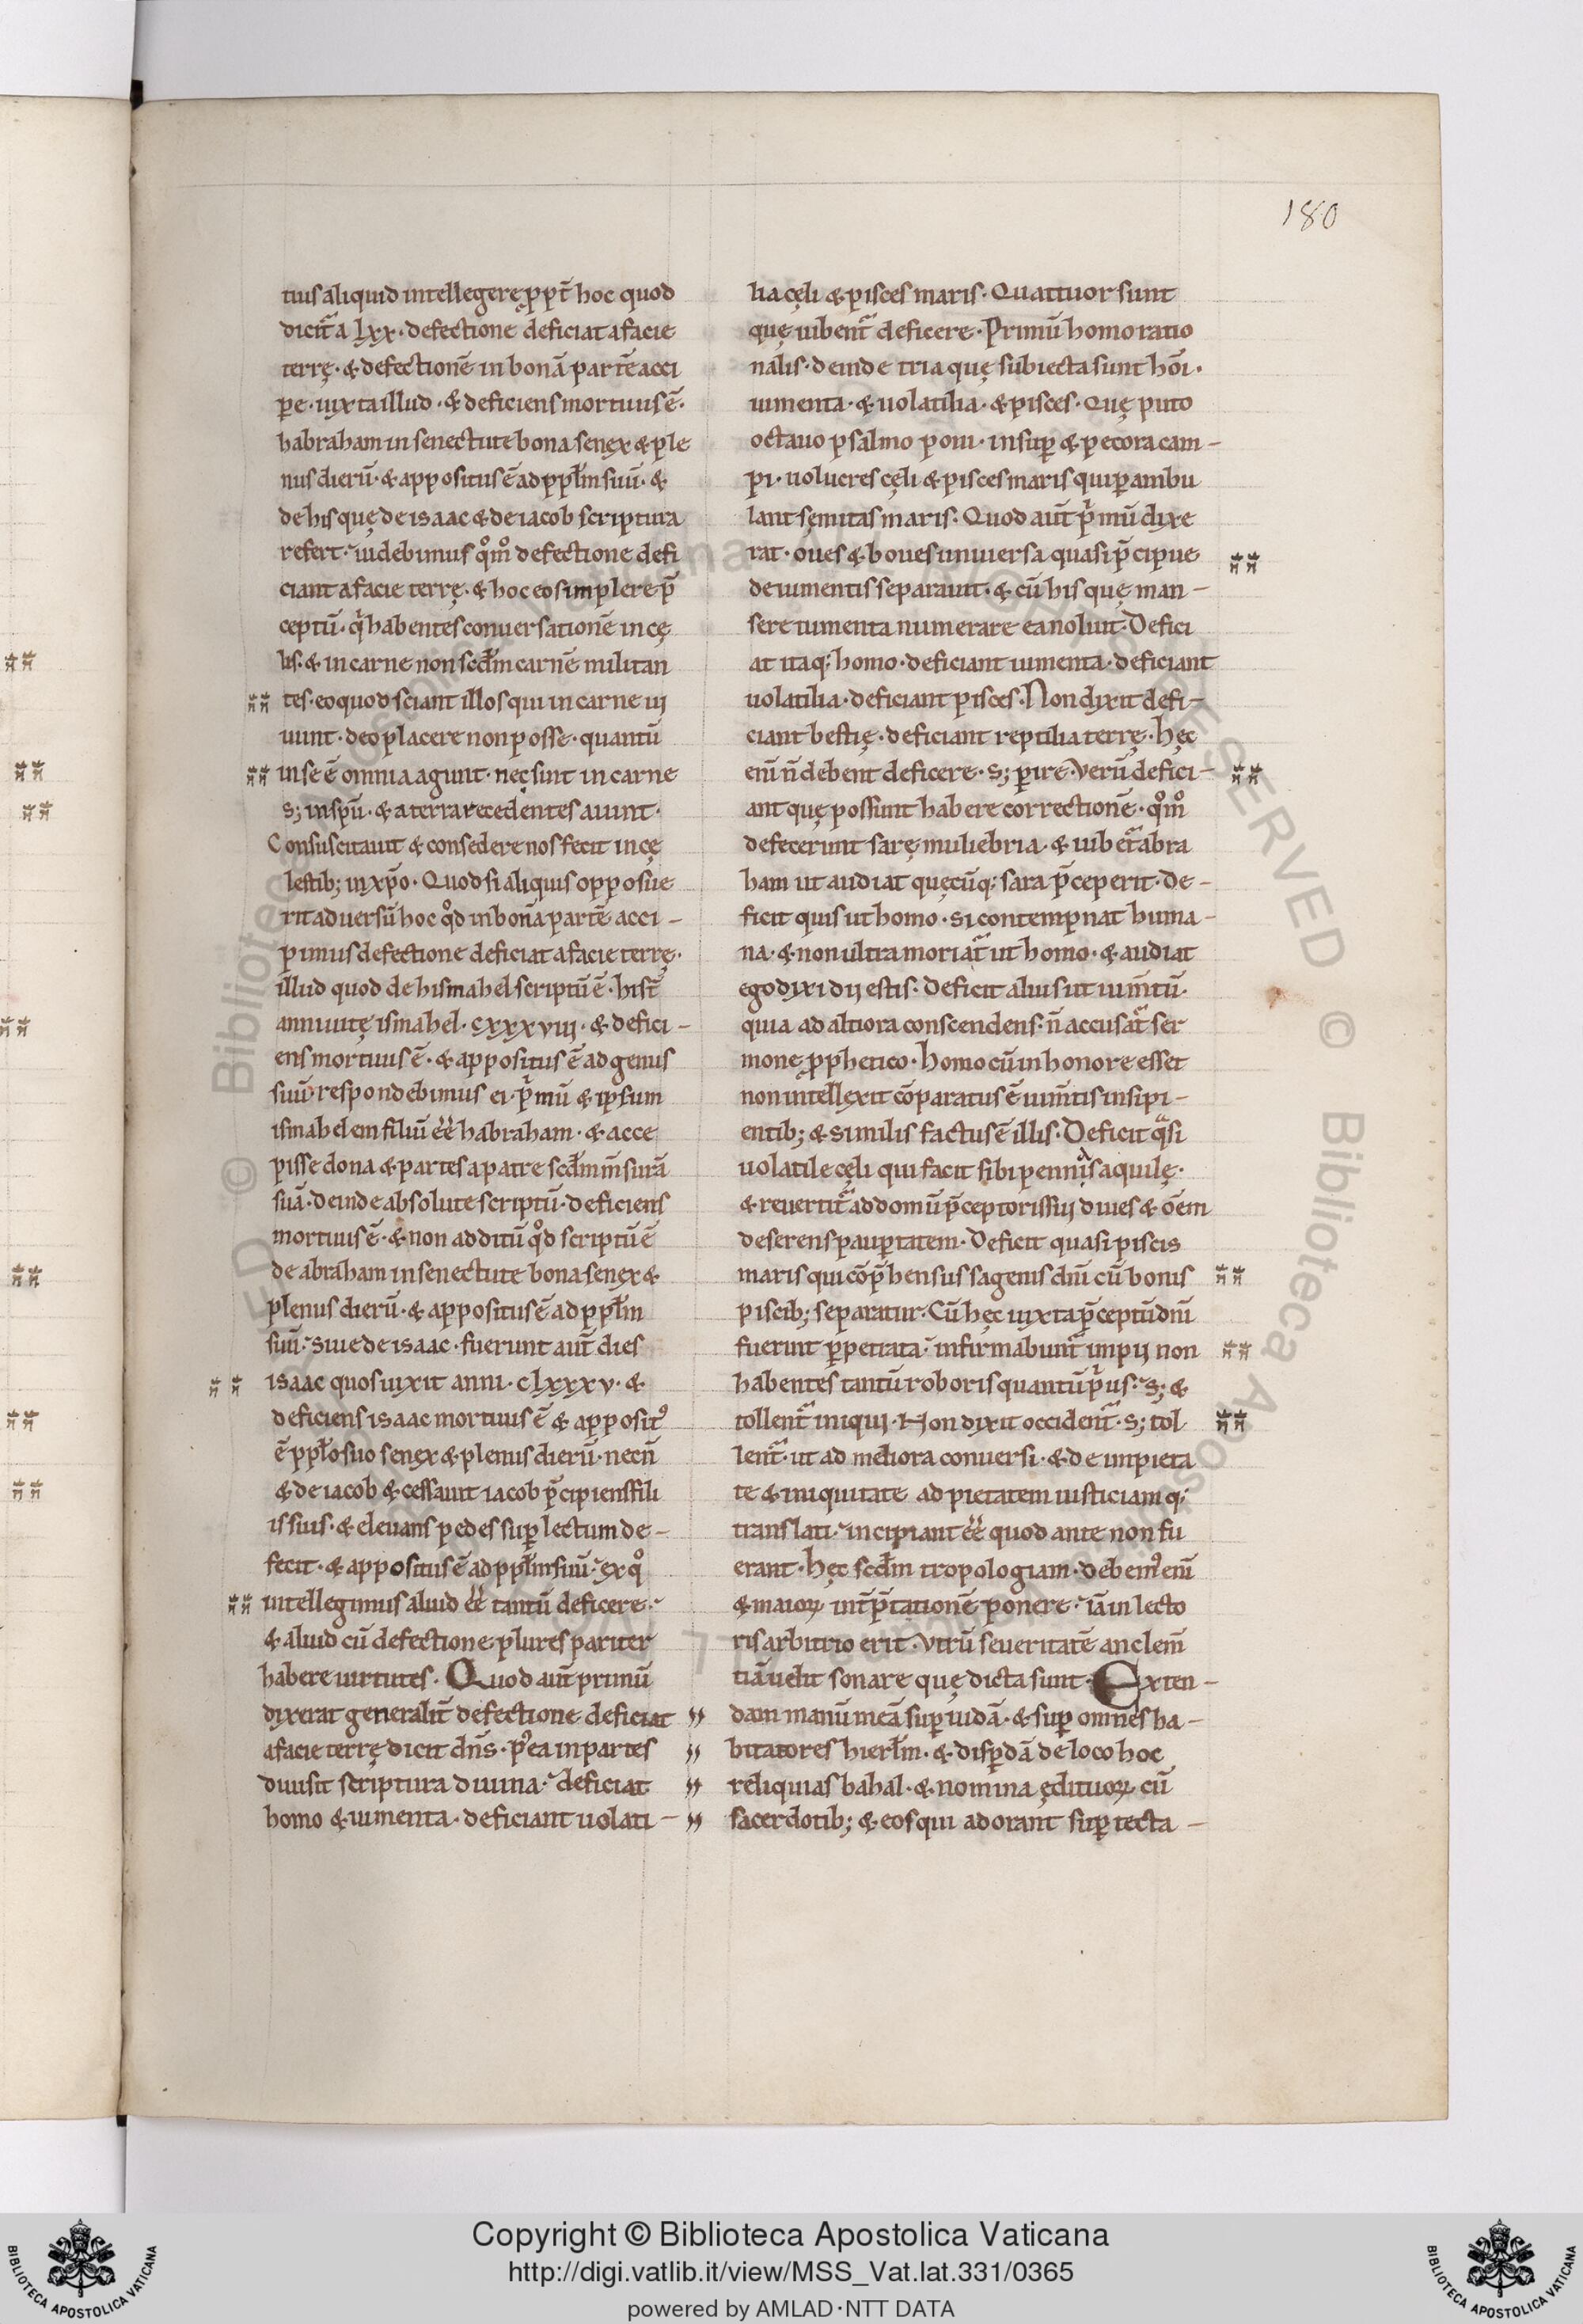 180
tius aliquid intellegere ꝓpt̄ hoc quod
dicit᷑ a lxx · defectione deficiat a facie
terrę · & defectionē in bonā partē acci
ꝑe · iuxta illud · & deficiens mortuus ē ·
habraham in senectute bona senex & ple
nus dierū · & appositus ē ad ppłm suū · &
de his quę de isaac & de iacob scriptura
refert · uidebimus qͦmͦ defectione defi
ciant a facie terrę · & hoc eos implere p̄
ceptū · qⁱ habentes conuersationē in cę
lis · & in carne non scdm̄ carnē militan
tes · eo quod sciant illos qui in carne ui
uunt · deo placere non posse · quantū
in se ē omnia agunt · nec sint in carne
s; in spū · & a terra recedentes aiunt ·
Consuscitauit & consedere nos fecit in cę
lestib; in xp̄o · Quod si aliquis opposue
rit aduersū hoc qͦd in bonā partē acci –
pimus defectione deficiat a facie terrę ·
illud quod de hismahel scriptū ē · hi st̄
anni uitę ismahel · cxxxviii · & defici –
ens mortuus ē · & appositus ē ad genus
suū · respondebimus ei · pⁱmū & ipsum
ismahelem filiū ēē habraham · & acce
pisse dona & partes a patre scdm̄ m̄surā
suā · deinde absolute scriptū · deficiens
mortuus ē · & non additū qͦd scriptū ē
de abraham in senectute bona senex &
plenus dierū · & appositus ē ad ppłm
suū · siue de isaac · fuerunt aut̄ dies
isaac quos uixit anni · clxxxv · &
deficiens isaac mortuus ē & apposit⁹
ē ppło suo senex & plenus dierū · necn̄
& de iacob & cessauit iacob p̄cipiens fili
is suis · & eleuans pedes suꝑ lectum de –
fecit · & appositus ē ad ppłm suū · ex qͦ
intellegimus aliud ēē tantū deficere ·
& aliud cū defectione plures pariter
habere uirtutes · Quod aut̄ primū
dixerat generalit̄ defectione deficiat
a facie terrę dicit dn̄s · p⁹ea in partes
diuisit scriptura diuina · deficiat
homo & iumenta · deficiant uolati –
lia cęli & pisces maris · Quattuor sunt
quę iubent᷑ deficere · Primū homo ratio
nalis · deinde tria quę subiecta sunt hōi ·
iumenta · & uolatilia · & pisces · Quę puto
octauo psalmo poni · insuꝑ & pecora cam –
pi · uolucres cęli & pisces maris qui ꝑambu
lant semitas maris · Quod aut̄ pⁱmū dixe
rat · oues & boues uniuersa quasi p̄cipue
de iumentis separauit · & cū his quę man –
sere iumenta numerare ea noluit · Defici
at itaq; homo · deficiant iumenta · deficiant
uolatilia · deficiant pisces · Non dixit defi –
ciant bestię · deficiant reptilia terrę · hęc
eni n̄ debent deficere · s; ꝑire · Verū defici –
ant quę possunt habere correctionē · qͦmͦ
defecerunt sarę muliebria · & iubet᷑ abra
ham ut audiat quęcūq; sara p̄ceperit · de –
ficit quis ut homo · si contempnat huma –
na · & non ultra moriat᷑ ut homo · & audiat
ego dixi dii estis · Deficit alius ut ium̄tū ·
quia ad altiora conscendens · n̄ accusat᷑ ser
mone ꝓphetico · homo cū in honore esset
non intellexit cōparatus ē ium̄tis insipi –
entib; & similis factus ē illis · Deficit qᵃsi
uolatile cęli qui facit sibi pennas aquilę ·
& reuertit᷑ ad domū p̄cepторis sui diues & ōem
deserens pauꝑtatem · Deficit quasi piscis
maris qui cōp̄hensus sagenis dn̄i cū bonis
piscib; separatur · Cū hęc iuxta p̄ceptū dn̄i
fuerint ꝑpetrata · infirmabunt᷑ impii non
habentes tantū roboris quantū pⁱus · s; &
tollent᷑ iniqui · Non dixit occident᷑ · s; tol
lent᷑ · ut ad meliora conuersi · & de impieta
te & iniquitate ad pietatem iusticiamq;
translati · incipiant ēē quod ante non fu
erant · hęc scdm̄ tropologiam · debem⁹ enī
& maioꝝ int̄p̄tationē ponere · iā in lecto
ris arbitrio erit · Vtrū seueritatē an clem̄
tiā uelit sonare quę dicta sunt · Exten –
dam manū meā suꝑ iudā · & suꝑ omnes ha –
bitatores hierłm · & disꝑdā de loco hoc
reliquias bahal · & nomina ędituoꝝ cū
sacerdotib; & eos qui adorant suꝑ tecta –
Copyright © Biblioteca Apostolica Vaticana
http://digi.vatlib.it/view/MSS_Vat.lat.331/0365
powered by AMLAD·NTT DATA
BIBLIOTECA APOSTOLICA VATICANA
BIBLIOTECA APOSTOLICA VATICANA